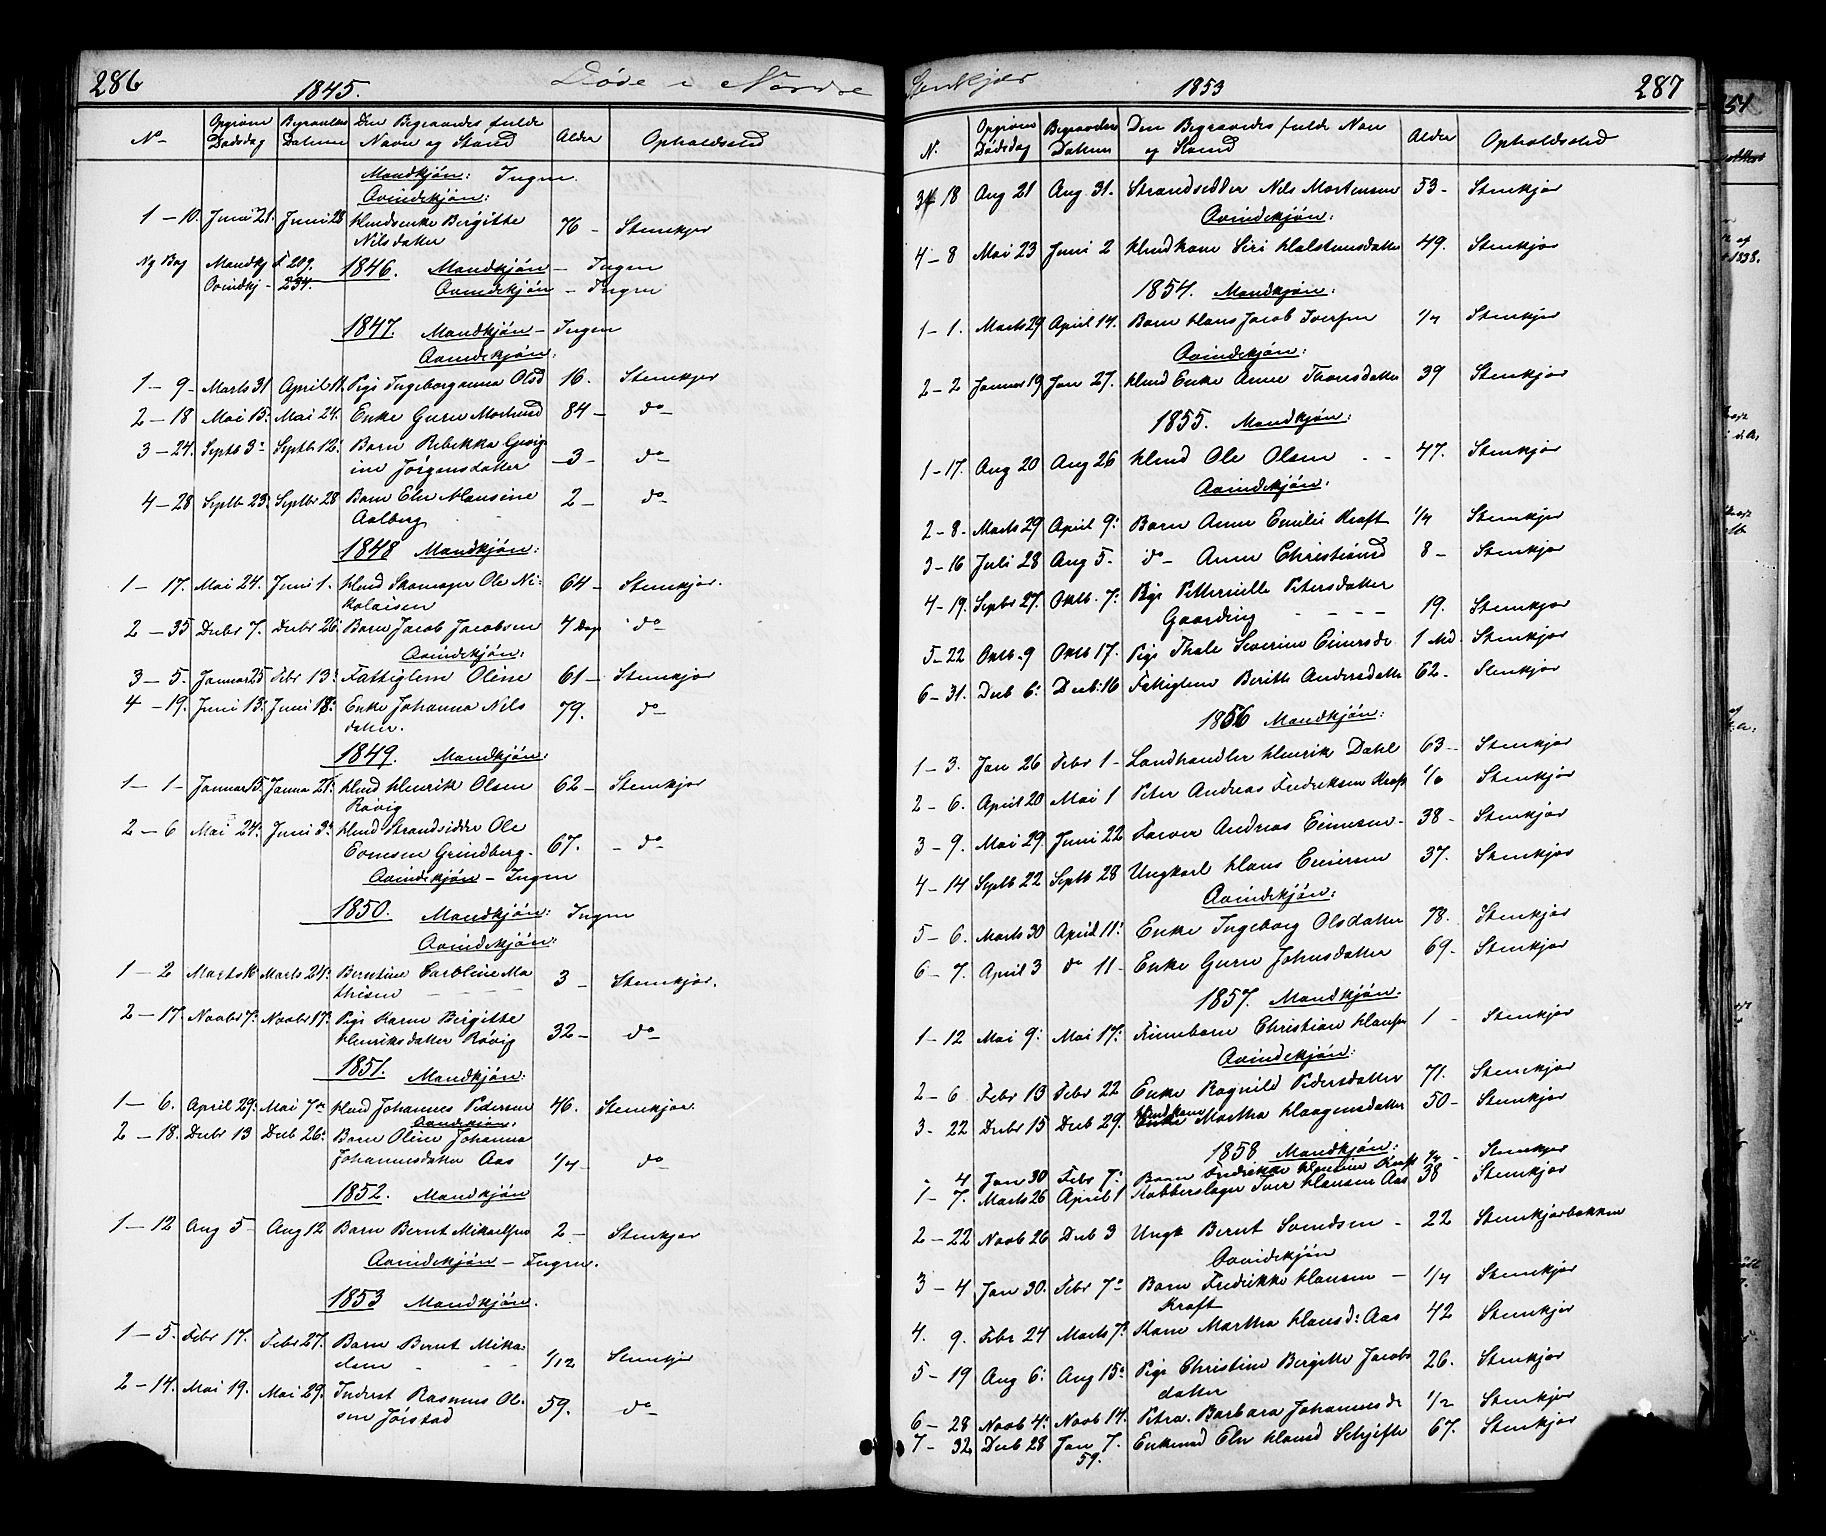 286
1845.
Døde i Nordre
No
Opgivne Dødsdag
Begravelses Datum
Den Begravedes fulde Navn og Stand
Alder
Opholdssted
Mandkjøn: Ingen.
Qvindekjøn:
1 - 10. Juni 21. Juni 28 Huusenke Bergitte 76 - Stenkjer
Nilsdatter
Ny Bog Mandkj F 209.
Qvindkj - 234.
1846. Mandkjøn - Ingen
Qvindekjøn - Ingen
1847. Mandkjøn - Ingen
Qvindekjøn:
1 - 9 - Marts 31 April 11. Pige Ingeborganna Olsd 16. Stenkjer
2 - 18 Mai 15. Mai 24. Enke Guru Mortensd 84 - do
3 - 24. Septb 3. Septb 12. Barn Rebekka Georg
ine Jørgensdatter - 3 - do
4 - 28 Septb 23. Septbr 28 Barn Elen Hansine 2 - do
Aalberg
1848 Mandkjøn:
1 - 17. Mai 24. Juni 1. Huusd Skomager Ole Ni- 64 - Stenkjør.
kolaisen
2 - 35 Decbr 7. Decbr 26. Barn Jacob Jacobsen 4 Dage do
Qvindekjøn:
3 - 5. Januar 25 Febr 13. Fattiglem Oline 61 - Stenkjør
4 - 19. Juni 13. Juni 18. Enke Johanna Nils 79. do
datter.
1849. Mandkjøn:
1 - 1 - Januar 15. Janua 21. Huusd Henrik Olsen 62 - Stenkjør
Røvig
2 - 6 Mai 24. Juni 3. Huusd Strandsidder Ole
Evensen Grindberg - 67. - do
Qvindekjøn - Ingen
1850. Mandkjøn: Ingen
Qvindekjøn:
1 - 2 Marts Marts 21. Berntine Caroline Ma 3 - Stenkjør.
thisen
2 - 17 Novbr 7. Novbr 17. Pige Karen Bergitte
Henriksdatter Røvig 32 - do
1851. Mandkjøn:
1 - 6. April 29. Mai 7 Huusd Johannes Pedersen 46. Stenkjør.
Qvindekjøn:
2 - 18. Decbr 13 Decb 26. Barn Oline Johanna
Johannesdatter Aas 1/4 - do
1852. Mandkjøn
1 - 12 Aug 5 - Aug 12 Barn Bernt Mikaelsen 2 - Stenkjør
Qvindekjøn - Ingen.
1853 Mandkjøn.
1 - 5. Febr 17. Febr 27. Barn Bernt Mika-
elsen 1/12 Stenkjør
2 - 14. Mai 19. Mai 29. Inderst Rasmus Ol-
sen Jørstad 59. do
Stenkjær
1853
287
N.
Opgivne Dødsdag
Begravelses Datum
Den Begravedes fulde Navn og Stand
Alder
Opholdssted
3 18 Aug 21 Aug 31. Strandsidder Nils Mortensen 53 - Stenkjør
Qvindekjøn:
4 - 8 Mai 23 Juni 2 Huuskone Siri Halstensdatter 49. Stenkjør
1854. Mandkjøn:
1 - 1. Marts 29 April 14. Barn Hans Jacob Iversen 1/4 Stenkjør
Qvindekjøn:
2 - 2 Januar 19 Jan 27. Huusd Enke Anne Thomsdatter 39 Stenkjør
1855. Mandkjøn:
1 - 17. Aug 20 Aug 26 Huusd Ole Olsen - - 47. Stenkjør
Qvindekjøn:
2 - 8. Marts 29 April 9. Barn Anne Emilie Kraft 1/4 Stenkjør
3 - 16 Juli 28 Aug 5. do - Anne Christiansd 8 - Stenkjør
4 - 19. Septbr 27. Oktb. 7. Pige Petternille Petersdatter
Gaarding - - - - 19. Stenkjør
5 - 22 Oktb. 9 Oktb 17. Pige Thale Severine Einersdr 1 Md Stenkjør
6 - 31. Decb 6. Decb. 16 Fattiglem Berith Andersdatter 62 - Stenkjør
1856 Mandkjøn:
1 - 3. Jan 26 Febr 1 - Landhandler Henrik Dahl 63 - Stenkjør
2 - 6. April 20 Mai 1 Peter Andreas Fredriksen Kraft 1/6 Stenkjør
3 - 9. Mai 29. Juni 22 Farver Andreas Einersen - 38 - Stenkjør
4 - 14 Septb 22 Septb 28 Ungkarl Hans Einersen 37. Stenkjør
Qvindekjøn:
5 - 6. Marts 30 April 11. Enke Ingeborg Olsdatter 78. Stenkjør
6 - 7. April 3 do 11 - Enke Guru Johnsdatter 69. Stenkjør
1857. Mandkjøn.
1 - 12 Mai 9. Mai 17. Finnebarn Christian Hansen 1 - Stenkjør
Qvindekjøn:
2 - 6 Febr 13 Febr 22 Enke Ragnild Pedersdatter 71. Stenkjør
3 - 22 Decbr 15 Decb 29. Huuskone Martha Haagensdatter 50 - Stenkjør
1858 Mandkjøn:
- 4 Jan 30 Febr 7. Barn Fredrikke Hansine Kraft 1/4 - Stenkjør
1 - 7. Marts 26 April 1 Kobberslager Iver Hansen Aas 38 Stenkjør
2 - 22 Novb 26 Decb 3 Ungk Bernt Svendsen - 22 Stenkjørbakken
Qvindekjøn
3 - 4 Jan 30. Febr 7 Barn Fredrikke Hansen - 1/4 Stenkjør
Kraft
4. 9. Febr 24 Marts 7. Kone Martha Hansd: Aas 42 Stenkjør
5 - 19 Aug 6. Aug 15. Pige Christine Bergitte Jacobs 26. Stenkjør
datter
6 - 28 Novb 4. Novb 14. Petra. Barbara Johannesdr 1/2 Stenkjør
7 - 32 Decb 28 Jan 7. Enkemad Elen Hansd Schjefte 67. Stenkjør
59.